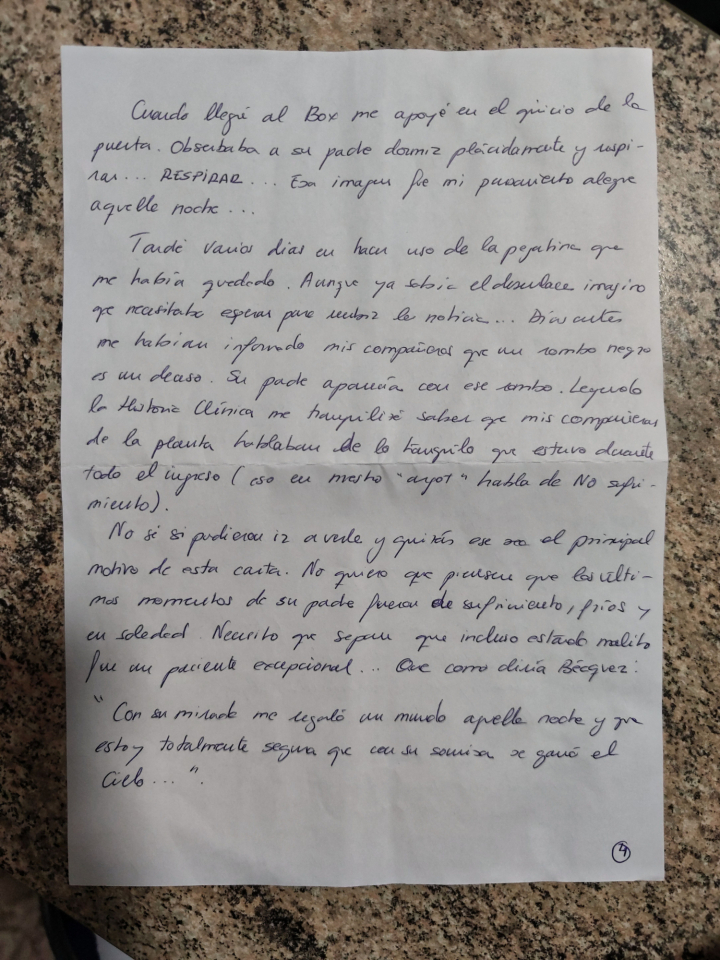 Cuando llegué al Box me apoyé en el quicio de la
puerta. Observaba a su padre dormir plácidamente y respi-
rar... RESPIRAR... Esa imagen fue mi pensamiento alegre
aquella noche...
Tardé varios días en hacer uso de la pegatina que
me había quedado. Aunque ya sabía el desenlace imagino
que necesitaba esperar para recibir la noticia... Días antes
me habían informado mis compañeros que un rombo negro
es un deceso. Su padre aparecía con ese rombo. Leyendo
la Historia Clínica me tranquilizó saber que mis compañeros
de la planta hablaban de lo tranquilo que estuvo durante
todo el ingreso (eso en nuestro "argot" habla de No sufri-
miento).
No sé si pudieron ir a verle y quizás ese sea el principal
motivo de esta carta. No quiero que piensen que los últi-
mos momentos de su padre fueron de sufrimiento, fríos y
en soledad. Necesito que sepan que incluso estando malito
fue un paciente excepcional... Que como diría Bécquer:
"Con su mirada me regaló un mundo aquella noche y que
estoy totalmente segura que con su sonrisa se ganó el
Cielo...".
4